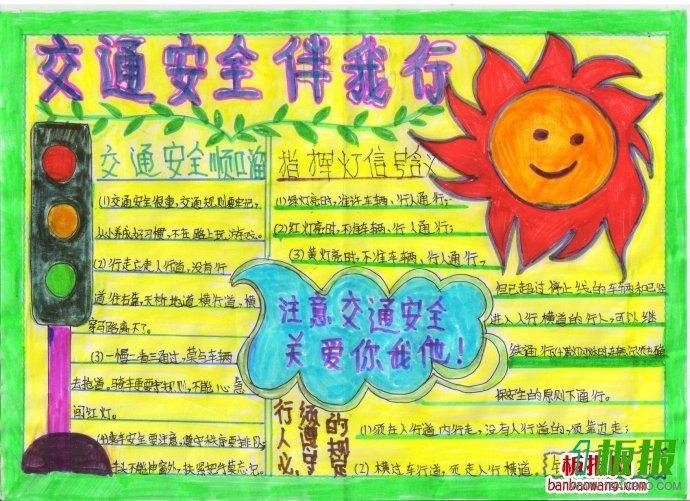 交通安全伴我行
交通安全顺口溜
(1)交通安全很重,交通规则要牢记,
从小养成好习惯,不在路上玩游戏。
(2)行走应走人行道,没有行
道往右靠,天桥地道横行道,横
穿马路离不了。
(3)一慢二看三通过,莫与车辆
去抢道。骑车更要守规则,不能心急
闯红灯。
(4)乘车安全要注意,遵守秩序要排队
手不能伸窗外,扶紧把手莫忘记。
指挥灯信号含义
(1)绿灯亮时,准许车辆、行人通行;
(2)红灯亮时,不准车辆、行人通行;
(3)黄灯亮时,不准车辆、行人通行,
但已超过停止线的车辆和已经
进入人行横道的行人,可以继
续通行
保安全的原则下通行。
注意交通安全
关爱你我他!
行人必
须遵守
的规定
(1)须在人行道内行走,没有人行道的,须靠边走;
(2)横过车行道,须走人行横道。
板报
banbaowang.com